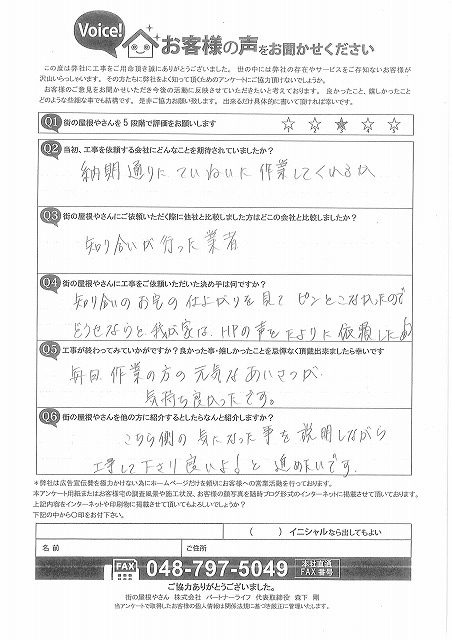 Voice!
お客様の声をお聞かせください
この度は弊社に工事をご用命頂き誠にありがとうございました。 世の中には弊社の存在やサービスをご存知ないお客様が
沢山いらっしゃいます。その方たちに弊社をよく知って頂くためのアンケートにご協力頂けないでしょうか。
お客様のご意見をお聞かせいただき今後の活動に反映させていただきたいと考えております。 良かったこと、嬉しかったこと
どのような些細な事でも結構です。 是非ご協力お願い致します。 出来るだけ具体的に書いて頂ければ幸いです。
Q1 街の屋根やさんを5段階で評価をお願いします ☆ ☆ ★ ☆ ☆
Q2 当初、工事を依頼する会社にどんなことを期待されていましたか?
納期通りにていねいに作業してくれるか
Q3 街の屋根やさんにご依頼いただく際に他社と比較しました方はどこの会社と比較しましたか?
知り合いが行った業者
Q4 街の屋根やさんに工事をご依頼いただいた決め手は何ですか?
知り合いのお宅の仕上がりを見てピンとこなかったので
どうせならと我が家は、HPの声をたよりに依頼した
Q5 工事が終わってみていかがですか?良かった事・嬉しかったことを忌憚なく頂戴出来ましたら幸いです
毎日、作業の方の元気なあいさつが
気持ち良かったです。
Q6 街の屋根やさんを他の方に紹介するとしたらなんと紹介しますか?
こちら側の気になった事を説明しながら
工事して下さり良いよ!と進めたいです。
*弊社は広告宣伝費を極力かけない為にホームページだけを頼りにお客様への営業活動を行っております。
本アンケート用紙またはお客様宅の調査風景や施工状況、お客様の顔写真を随時ブログ形式のインターネットに掲載させて頂いております。
上記内容をインターネットや印刷物に掲載させて頂いてもよろしいでしょうか?
下記の中から〇印をお付下さい。
( ) イニシャルなら出してもよい
名 前 ご住所
FAX 048-797-5049 本社直通 FAX番号
ご協力ありがとうございました。
街の屋根やさん 株式会社 パートナーライフ 代表取締役 森下 剛
当アンケートで取得したお客様の個人情報は関係法規に基づき厳正に管理いたします。